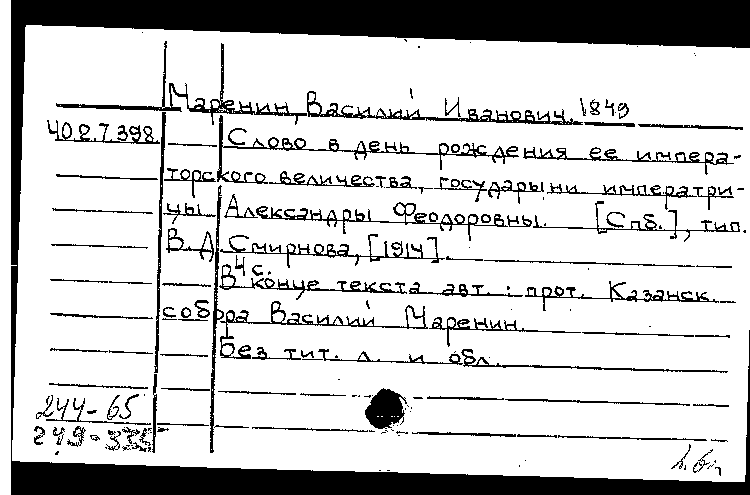 Маренин, Василий Иванович. 1849
40.2.7.398. Слово в день рождения ее импера-
торского величества, государыни императри-
цы Александры Феодоровны. [Спб.], тип.
В.Д. Смирнова, [1914].
4 с.
В конце текста авт.: прот. Казанск.
собора Василий Маренин.
Без тит. л. и обл.
244-65
249-335